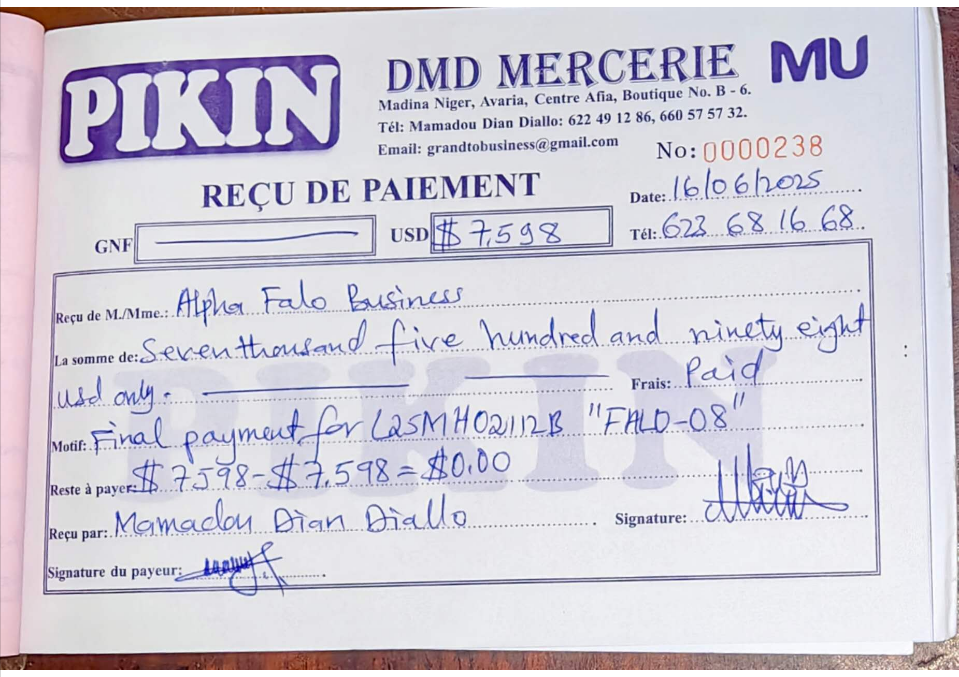 PIKIN
DMD MERCERIE MU
Madina Niger, Avaria, Centre Afia, Boutique No. B - 6.
Tél: Mamadou Dian Diallo: 622 49 12 86, 660 57 57 32.
Email: grandtobusiness@gmail.com
No: 0000238
REÇU DE PAIEMENT
Date: 16/06/2025
GNF USD $ 7,598
Tél: 623 68 16 68
Reçu de M./Mme.: Alpha Falo Business
La somme de: Seven thousand five hundred and ninety eight
usd only. Frais: Paid
Motif: Final payment for L25MH02112B "FALO-08"
Reste à payer: $ 7598-$ 7,598 = $0.00
Reçu par: Mamadou Dian Diallo Signature:
Signature du payeur:
PIKIN